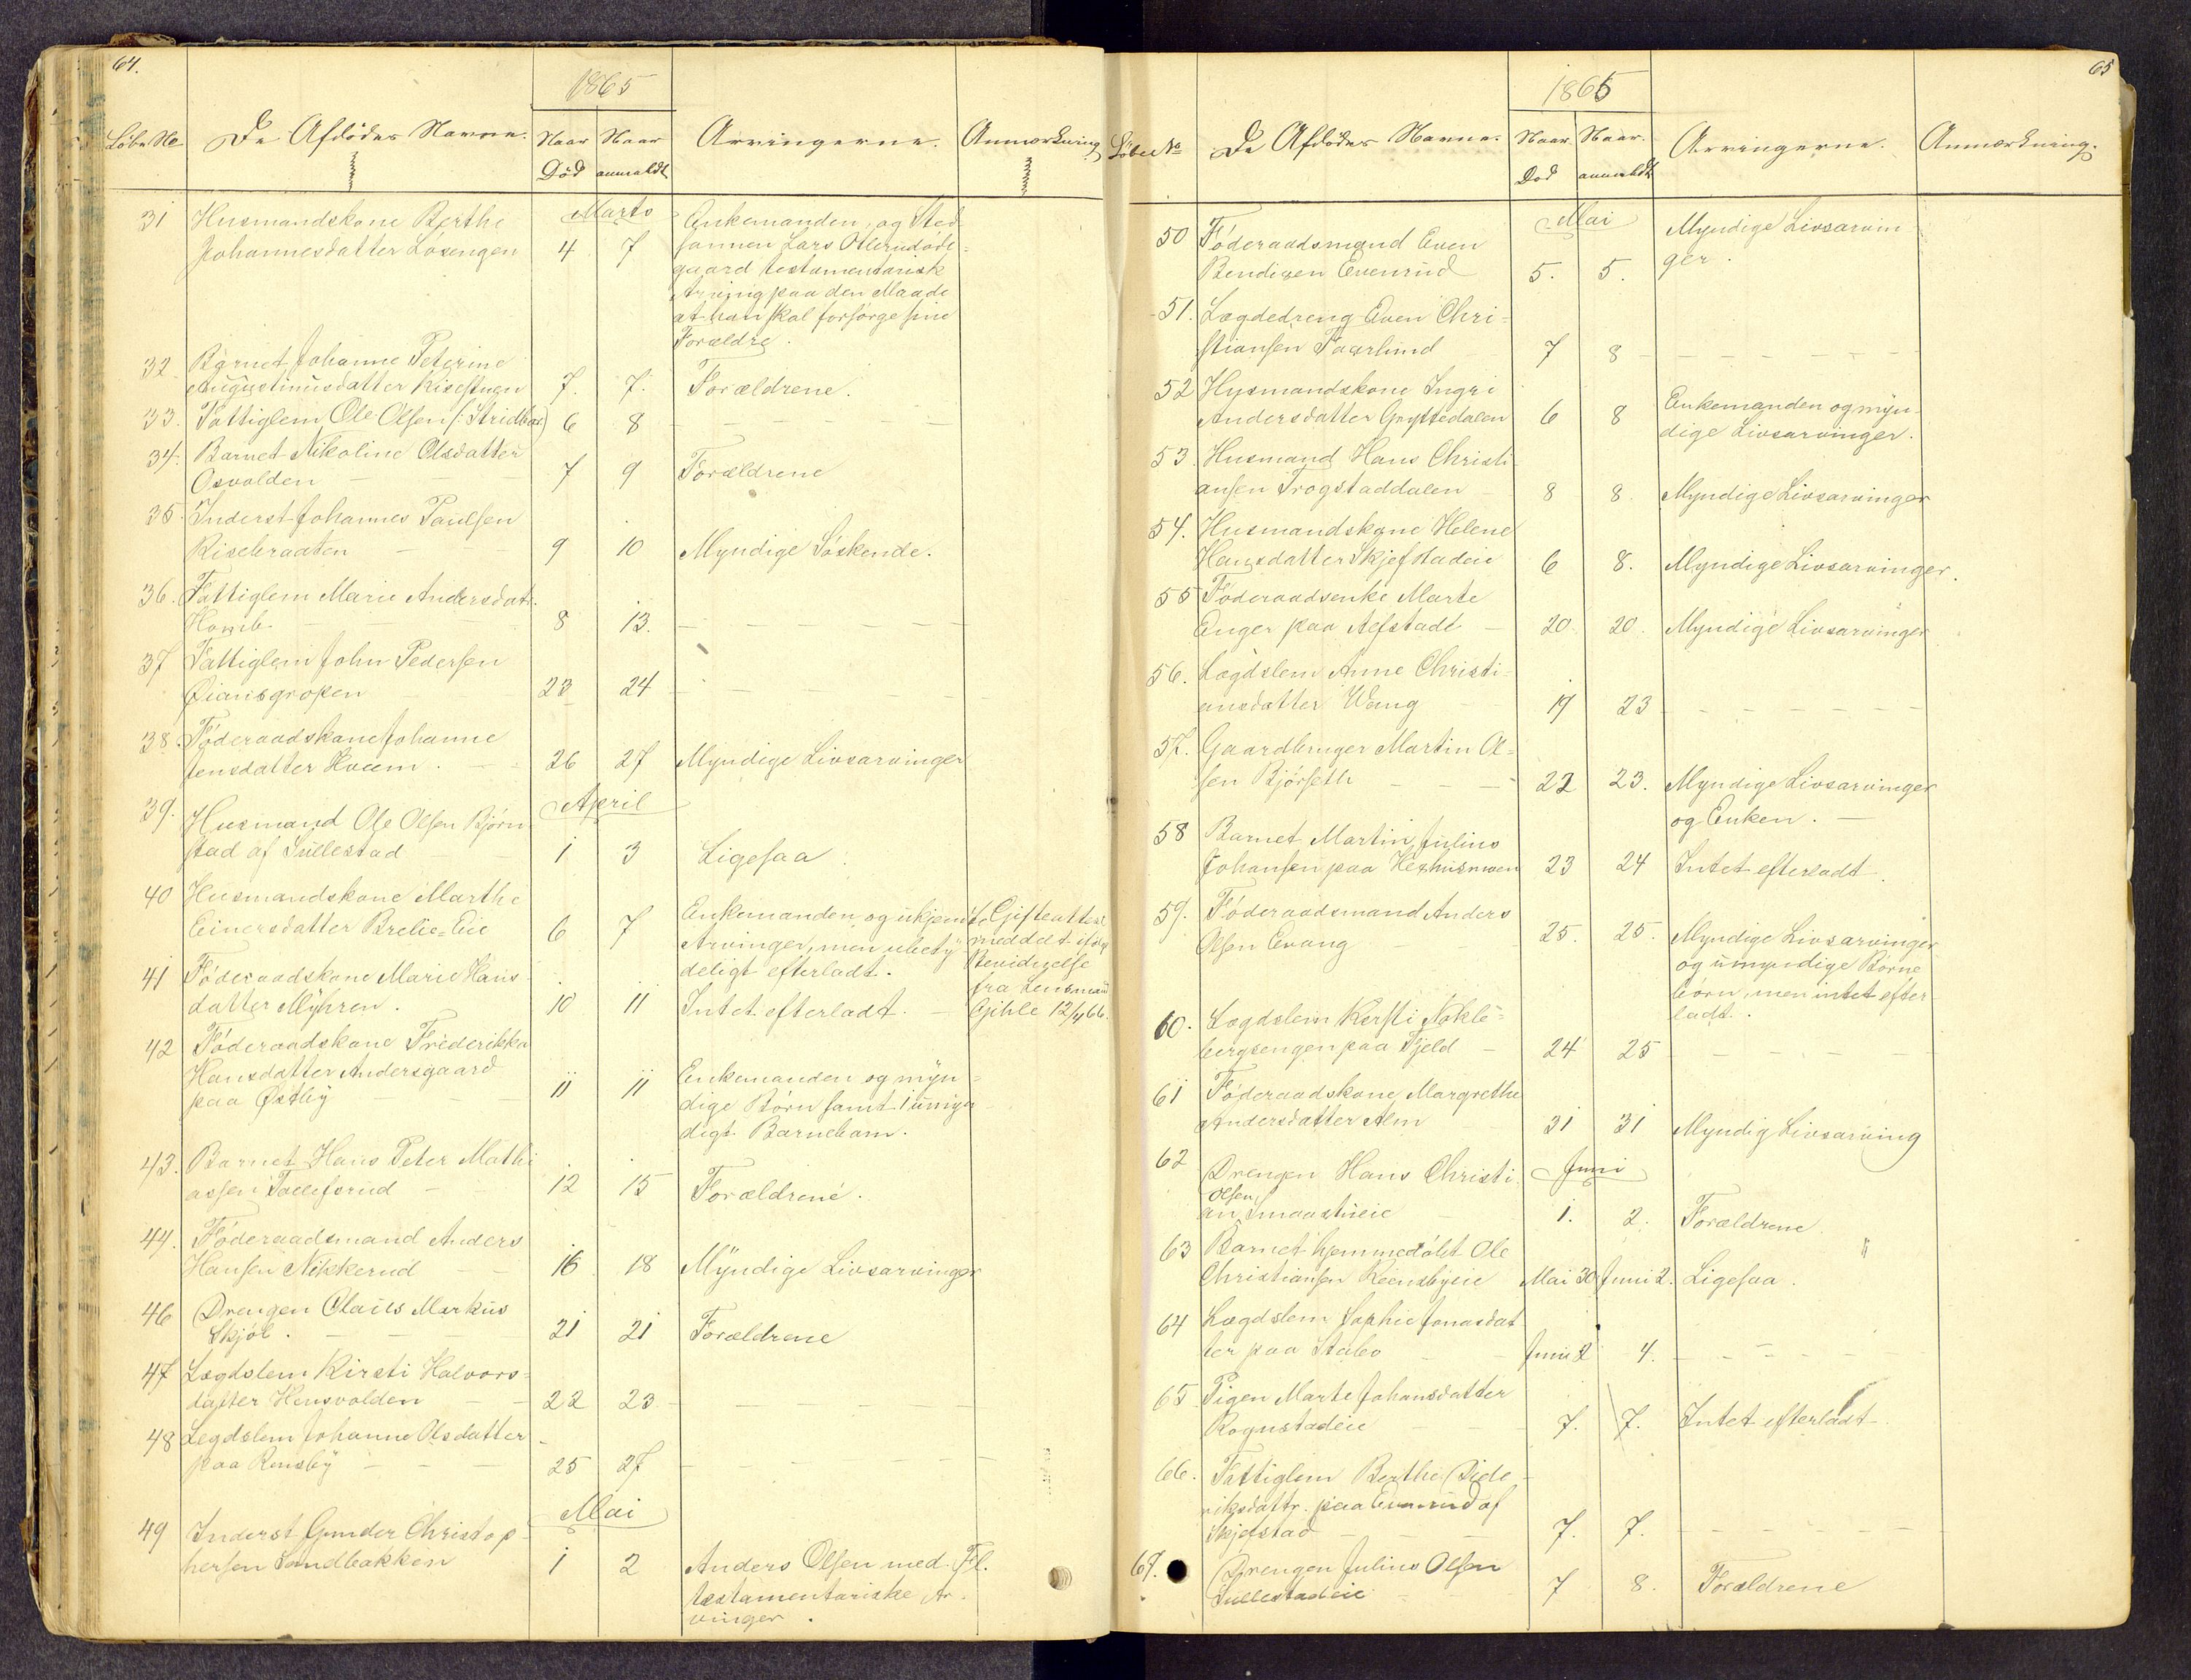 64.
1865
Löbe No De Afdödes Navne. Naar Död Naar anmeldt Arvingerne. Anmærkning
Marts
31 Husmandskone Berthe
Johannesdatter Losengen 4 7
Enkemanden og Sted
sønnen Lars
gaard testamentarisk
Arving paa den Maade
at han skal forsörge sine
Forældre.
32 Barnet Johanne Peterine
Augustinusdatter Risestuen 7. 7. Forældrene.
33. Fattiglem Ole Olsen 6 8 – – – – – –
34. Barnet Nikoline Olsdatter
Osvolden – 7 9 Forældrene
35. Inderst Johannes Paulsen
Risebraaten – – 9 10 Myndige Söskende.
36. Fattiglem Marie Andersdatr.
Homb – 8 13. – – – – – –
37 Fattiglem John Pedersen
23 24 – – – – – –
38. Föderaadskone Johanne
Jensdatter Hveem. – 26 27 Myndige Livsarvinger
April
39. Husmand Ole Olsen Björn
stad af Sullestad – 1 3 Ligesaa.
40 Husmandskone Marthe
Einersdatter Brelie-Eie 6 7
Enkemanden og ukjendte
Arvinger, men ubety
deligt efterladt.
Gifteattest
meddelt
Bevidnelse
fra Lensmand
Gihle 12/4 66.
41 Föderaadskone Marie Hans
datter Myhren. 10 11 Intet efterladt. –
42 Föderaadskone Frederikka
Hansdatter Andersgaard
paa Østby – – 11 11
Enkemanden og myn=
dige Börn samt 1 umyn
digt Barnebarn.
43. Barnet Hans Peter Mathi
assen Tollefsrud – 12 15 Forældrene.
44. Föderaadsmand Anders
Hansen Nikkerud – 16 18 Myndige Livsarvinger
46 Drengen Claus Markus
Skjöl. – – – 21 21 Forældrene
47 Lægdslem Kirsti Halvors=
datter Hensvolden – 22 23 – – – – –
48 Legdslem Johanne Olsdatter
paa Rensby – – – 25 27 – – – – – –
Mai
49 Inderst Gunder Christop
hersen Sandbakken 1 2
Anders Olsen med Fl.
testamentariske Ar
vinger.
65
1865
Löbe No De Afdödes Navne. Naar Död Naar anmeldt Arvingerne. Anmærkning.
Mai
50 Föderaadsmand Even
Bendixen Evenrud 5. 5.
Myndige Livsarvin
ger.
51. Lægdedreng Even Chri=
stiansen Faarlund 7 8 – – – – – –
52 Husmandskone Ingri
Andersdatter Gryttedalen 6 8
Enkemanden og myn
dige Livsarvinger.
53. Husmand Hans Christi
ansen Trogstaddalen 8 8. Myndige Livsarvinger
54. Husmandskone Helene
Hansdatter Skjefstadeie 6 8. Myndige Livsarvinger.
55 Föderaadsenke Marte
Enger paa Aefstadt – 20. 20. Myndige Livsarvinger
56. Lægdslem Anne Christi=
ansdatter Wang – 19 23 – – – – – –
57. Gaardbruger Martin Ol=
sen Björseth – – 22 23. Myndige Livsarvinger
og Enken. –
58 Barnet Martin Julius
Johansen paa 23 24 Intet efterladt.
59. Föderaadsmand Anders
Olsen Evang – – 25. 25.
Myndige Livsarvinger
og umyndige Börne
börn, men intet efter
ladt.
60. Lægdslem Kersti Nökle=
bergsengen paa Fjeld – 24 25 – – – – –
61 Föderaadskone Margrethe
Andersdatter Alm 31 31 Myndig Livsarving
Juni
62 Drengen Hans Christi
Olsen
an Smaastueie – 1. 2. Forældrene
63 Barnet hjemmedöbt Ole
Christiansen Reensbyeie Mai 30 Juni 2. Ligesaa.
64 Lægdslem Sophie Jonasdat
ter paa Stabo – – Juni 2 4. – – – – –
65 Pigen Marte Johansdatter
Rognstadeie – – 7. 7. Intet efterladt
66. Fattiglem Berthe Dide
riksdattr. paa Evenrud af
Skjefstad – – – 7. 7. – – – – –
67. Drengen Julius Olsen
Sullestadeie – – 7 8. Forældrene